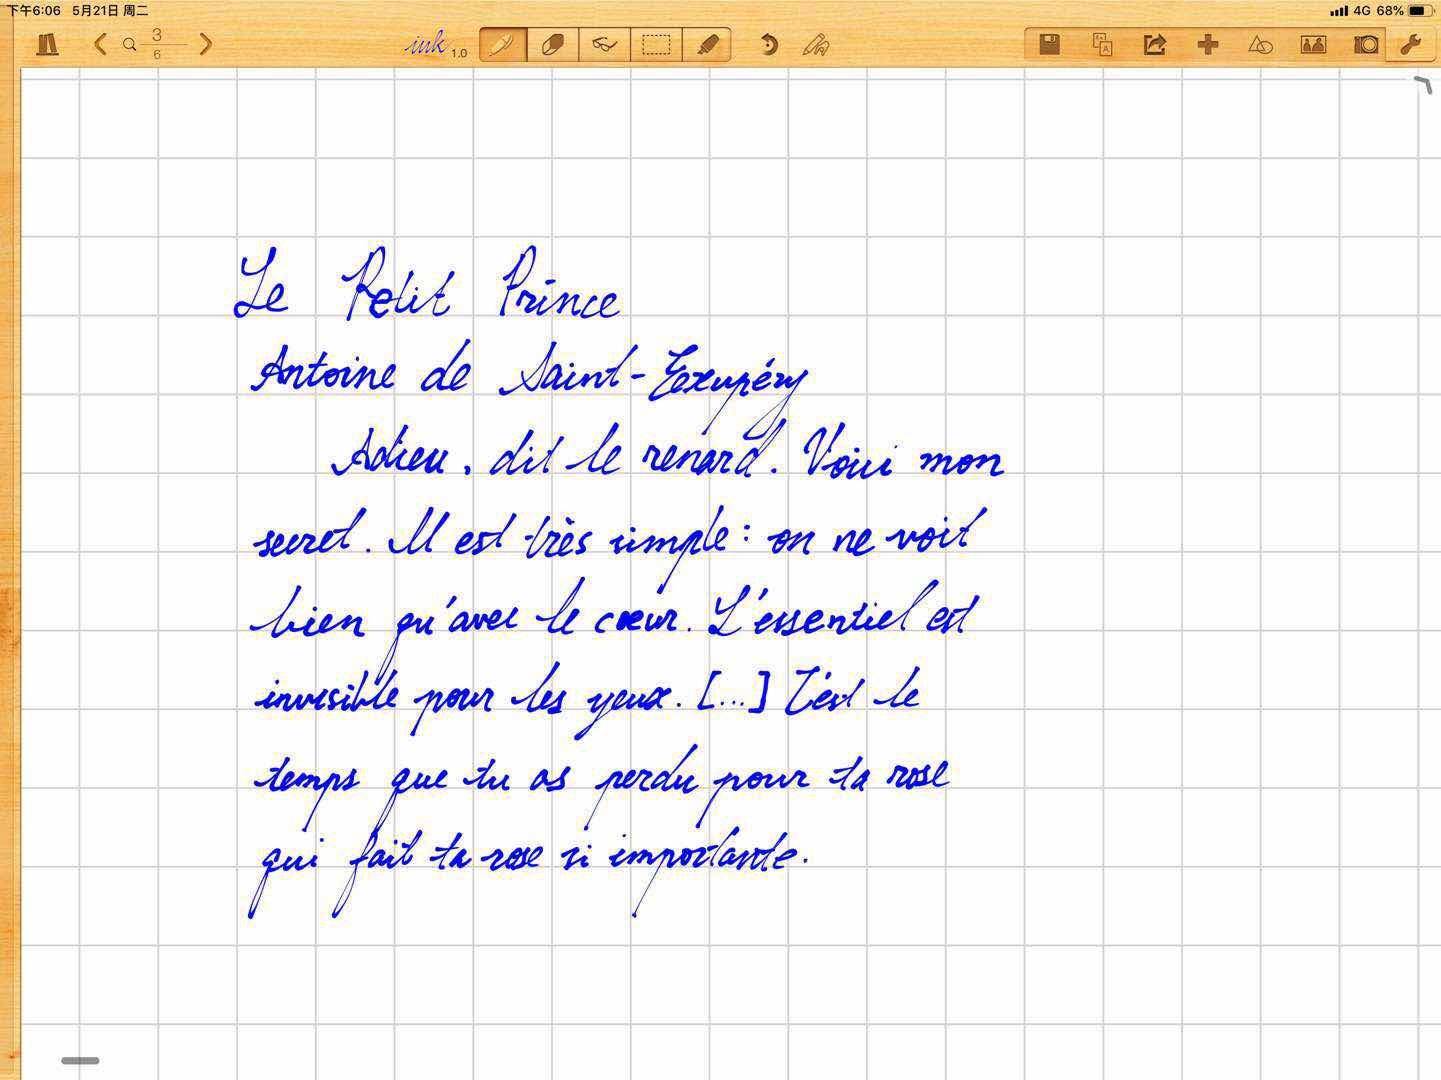 下午6:06 5月21日 周二
4G 68%
3
6
ink 1.0
Le Petit Prince
Antoine de Saint-Exupéry
Adieu, dit le renard. Voici mon
secret. Il est très simple: on ne voit
bien qu'avec le cœur. L'essentiel est
invisible pour les yeux. [...] C'est le
temps que tu as perdu pour ta rose
qui fait ta rose si importante.